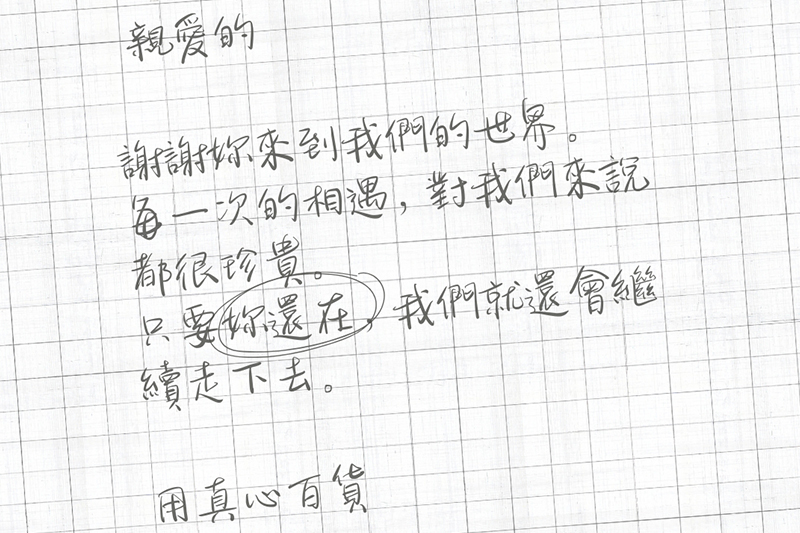 親愛的
謝謝妳來到我們的世界。
每一次的相遇，對我們來說
都很珍貴。
只要妳還在，我們就還會繼
續走下去。
用真心百貨